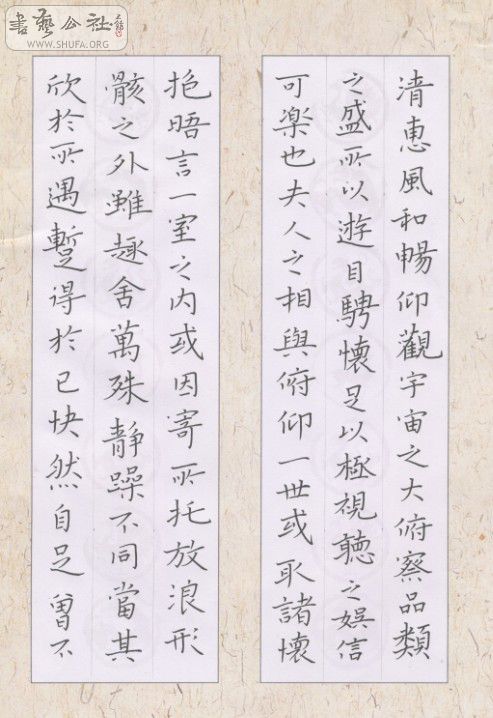 書藝公社
WWW.SHUFA.ORG
清惠風和暢仰觀宇宙之大俯察品類
之盛所以遊目騁懷足以極視聽之娛信
可樂也夫人之相與俯仰一世或取諸懷
抱晤言一室之內或因寄所托放浪形
骸之外雖趣舍萬殊靜躁不同當其
欣於所遇暫得於己快然自足曾不